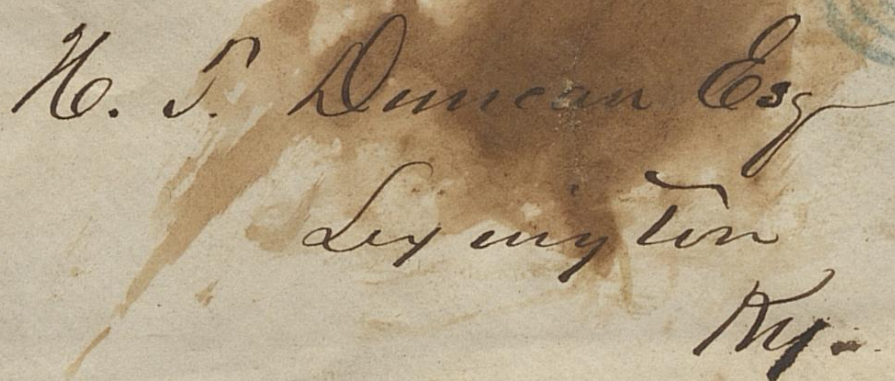 H. T. Duncan Esq
Lexington
Ky.